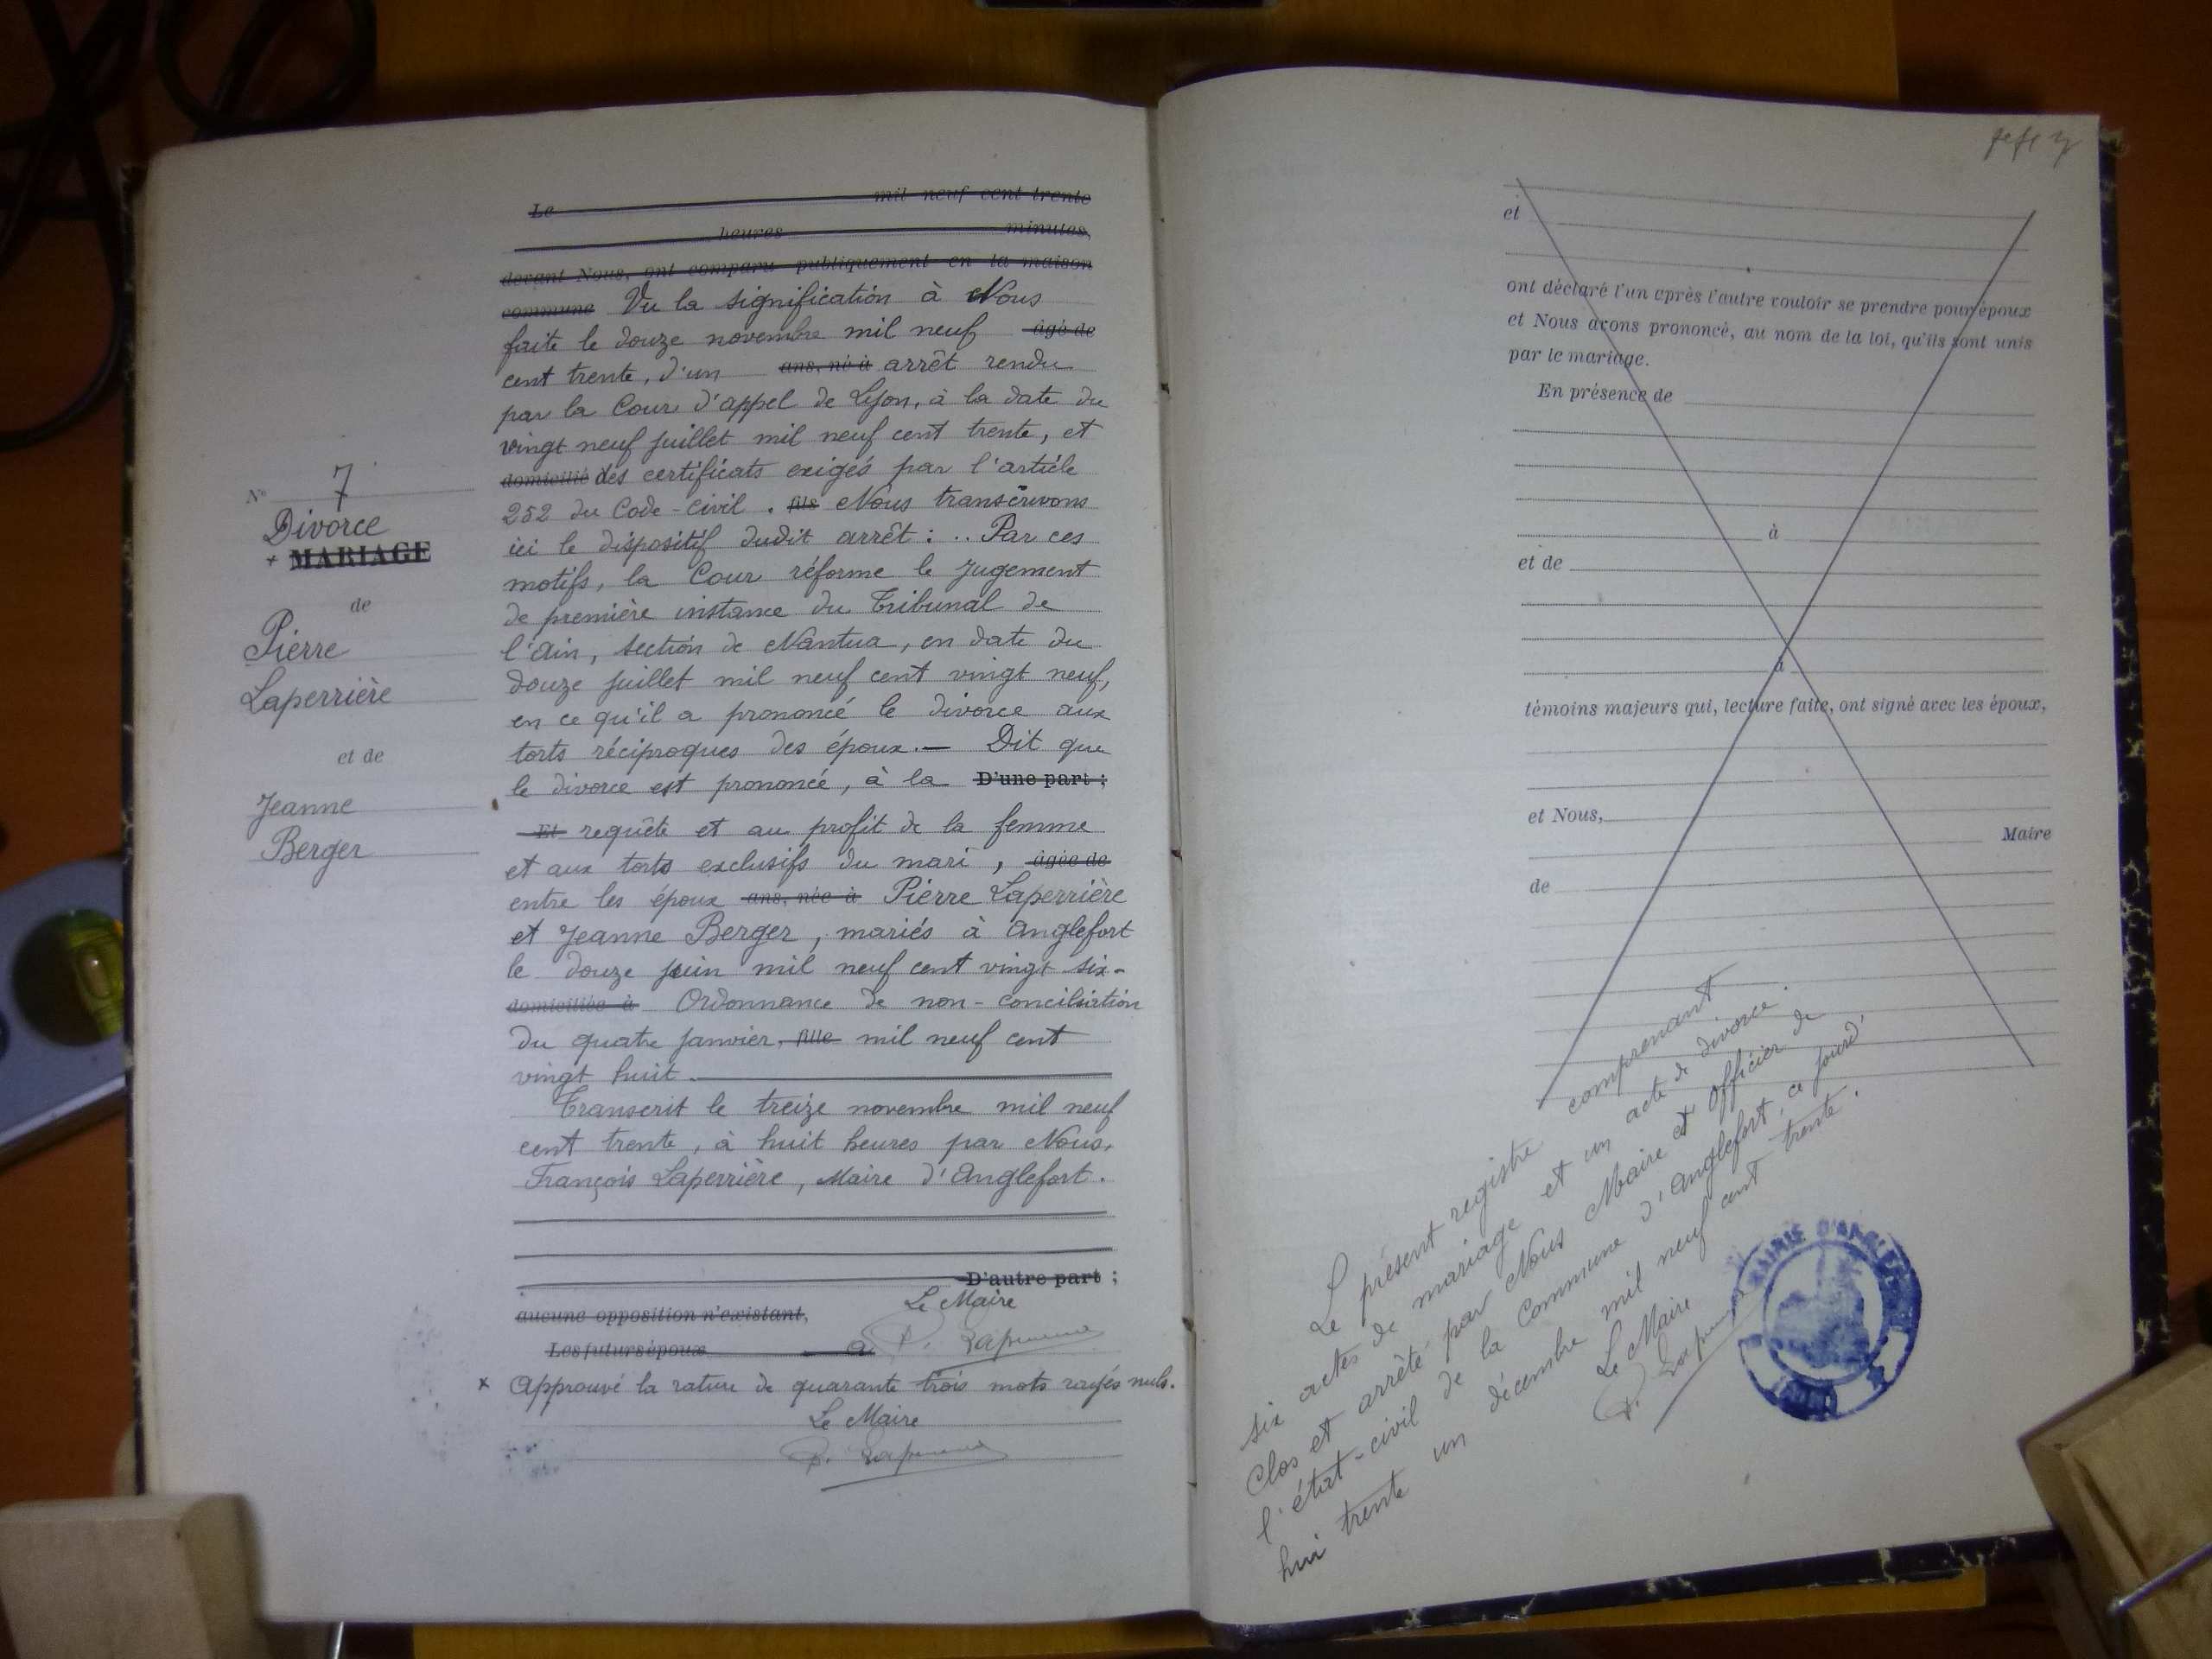 N° 7
Divorce
+ MARIAGE
de
Pierre
Laperrière
et de
Jeanne
Berger
Le mil neuf cent trente
heures minutes,
devant Nous, ont comparu publiquement en la maison
commune Vu la signification à Nous
faite le douze novembre mil neuf âgé de
cent trente, d'un ans, né à arrêt rendu
par la Cour d'appel de Lyon, à la date du
vingt neuf juillet mil neuf cent trente, et
domicilié des certificats exigés par l'article
252 du Code-civil. fils Nous transcrivons
ici le dispositif dudit arrêt : .. Par ces
motifs, la Cour réforme le jugement
de première instance du Tribunal de
l'Ain, section de Nantua, en date du
douze juillet mil neuf cent vingt neuf,
en ce qu'il a prononcé le divorce aux
torts réciproques des époux. — Dit que
le divorce est prononcé, à la D'une part ;
Et requête et au profit de la femme
et aux torts exclusifs du mari, âgée de
entre les époux ans, née à Pierre Laperrière
et Jeanne Berger, mariés à Anglefort
le douze juin mil neuf cent vingt six-
domiciliée à Ordonnance de non-conciliation
du quatre janvier, fille mil neuf cent
vingt huit.
Transcrit le treize novembre mil neuf
cent trente, à huit heures par Nous,
François Laperrière, Maire d'Anglefort.
D'autre part ;
aucune opposition n'existant, Le Maire
Les futurs époux a
x Approuvé la rature de quarante trois mots rayés nuls.
Le Maire
et
ont déclaré l'un après l'autre vouloir se prendre pour époux
et Nous avons prononcé, au nom de la loi, qu'ils sont unis
par le mariage.
En présence de
à
et de
à
témoins majeurs qui, lecture faite, ont signé avec les époux,
et Nous,
Maire
de
Le présent registre comprenant
six actes de mariage et un acte de divorce.
Clos et arrêté par Nous Maire et Officier de
l'état-civil de la Commune d'Anglefort, ce jourd'
hui trente un décembre mil neuf cent trente.
Le Maire
MAIRIE D'ANGLEFORT
(AIN)